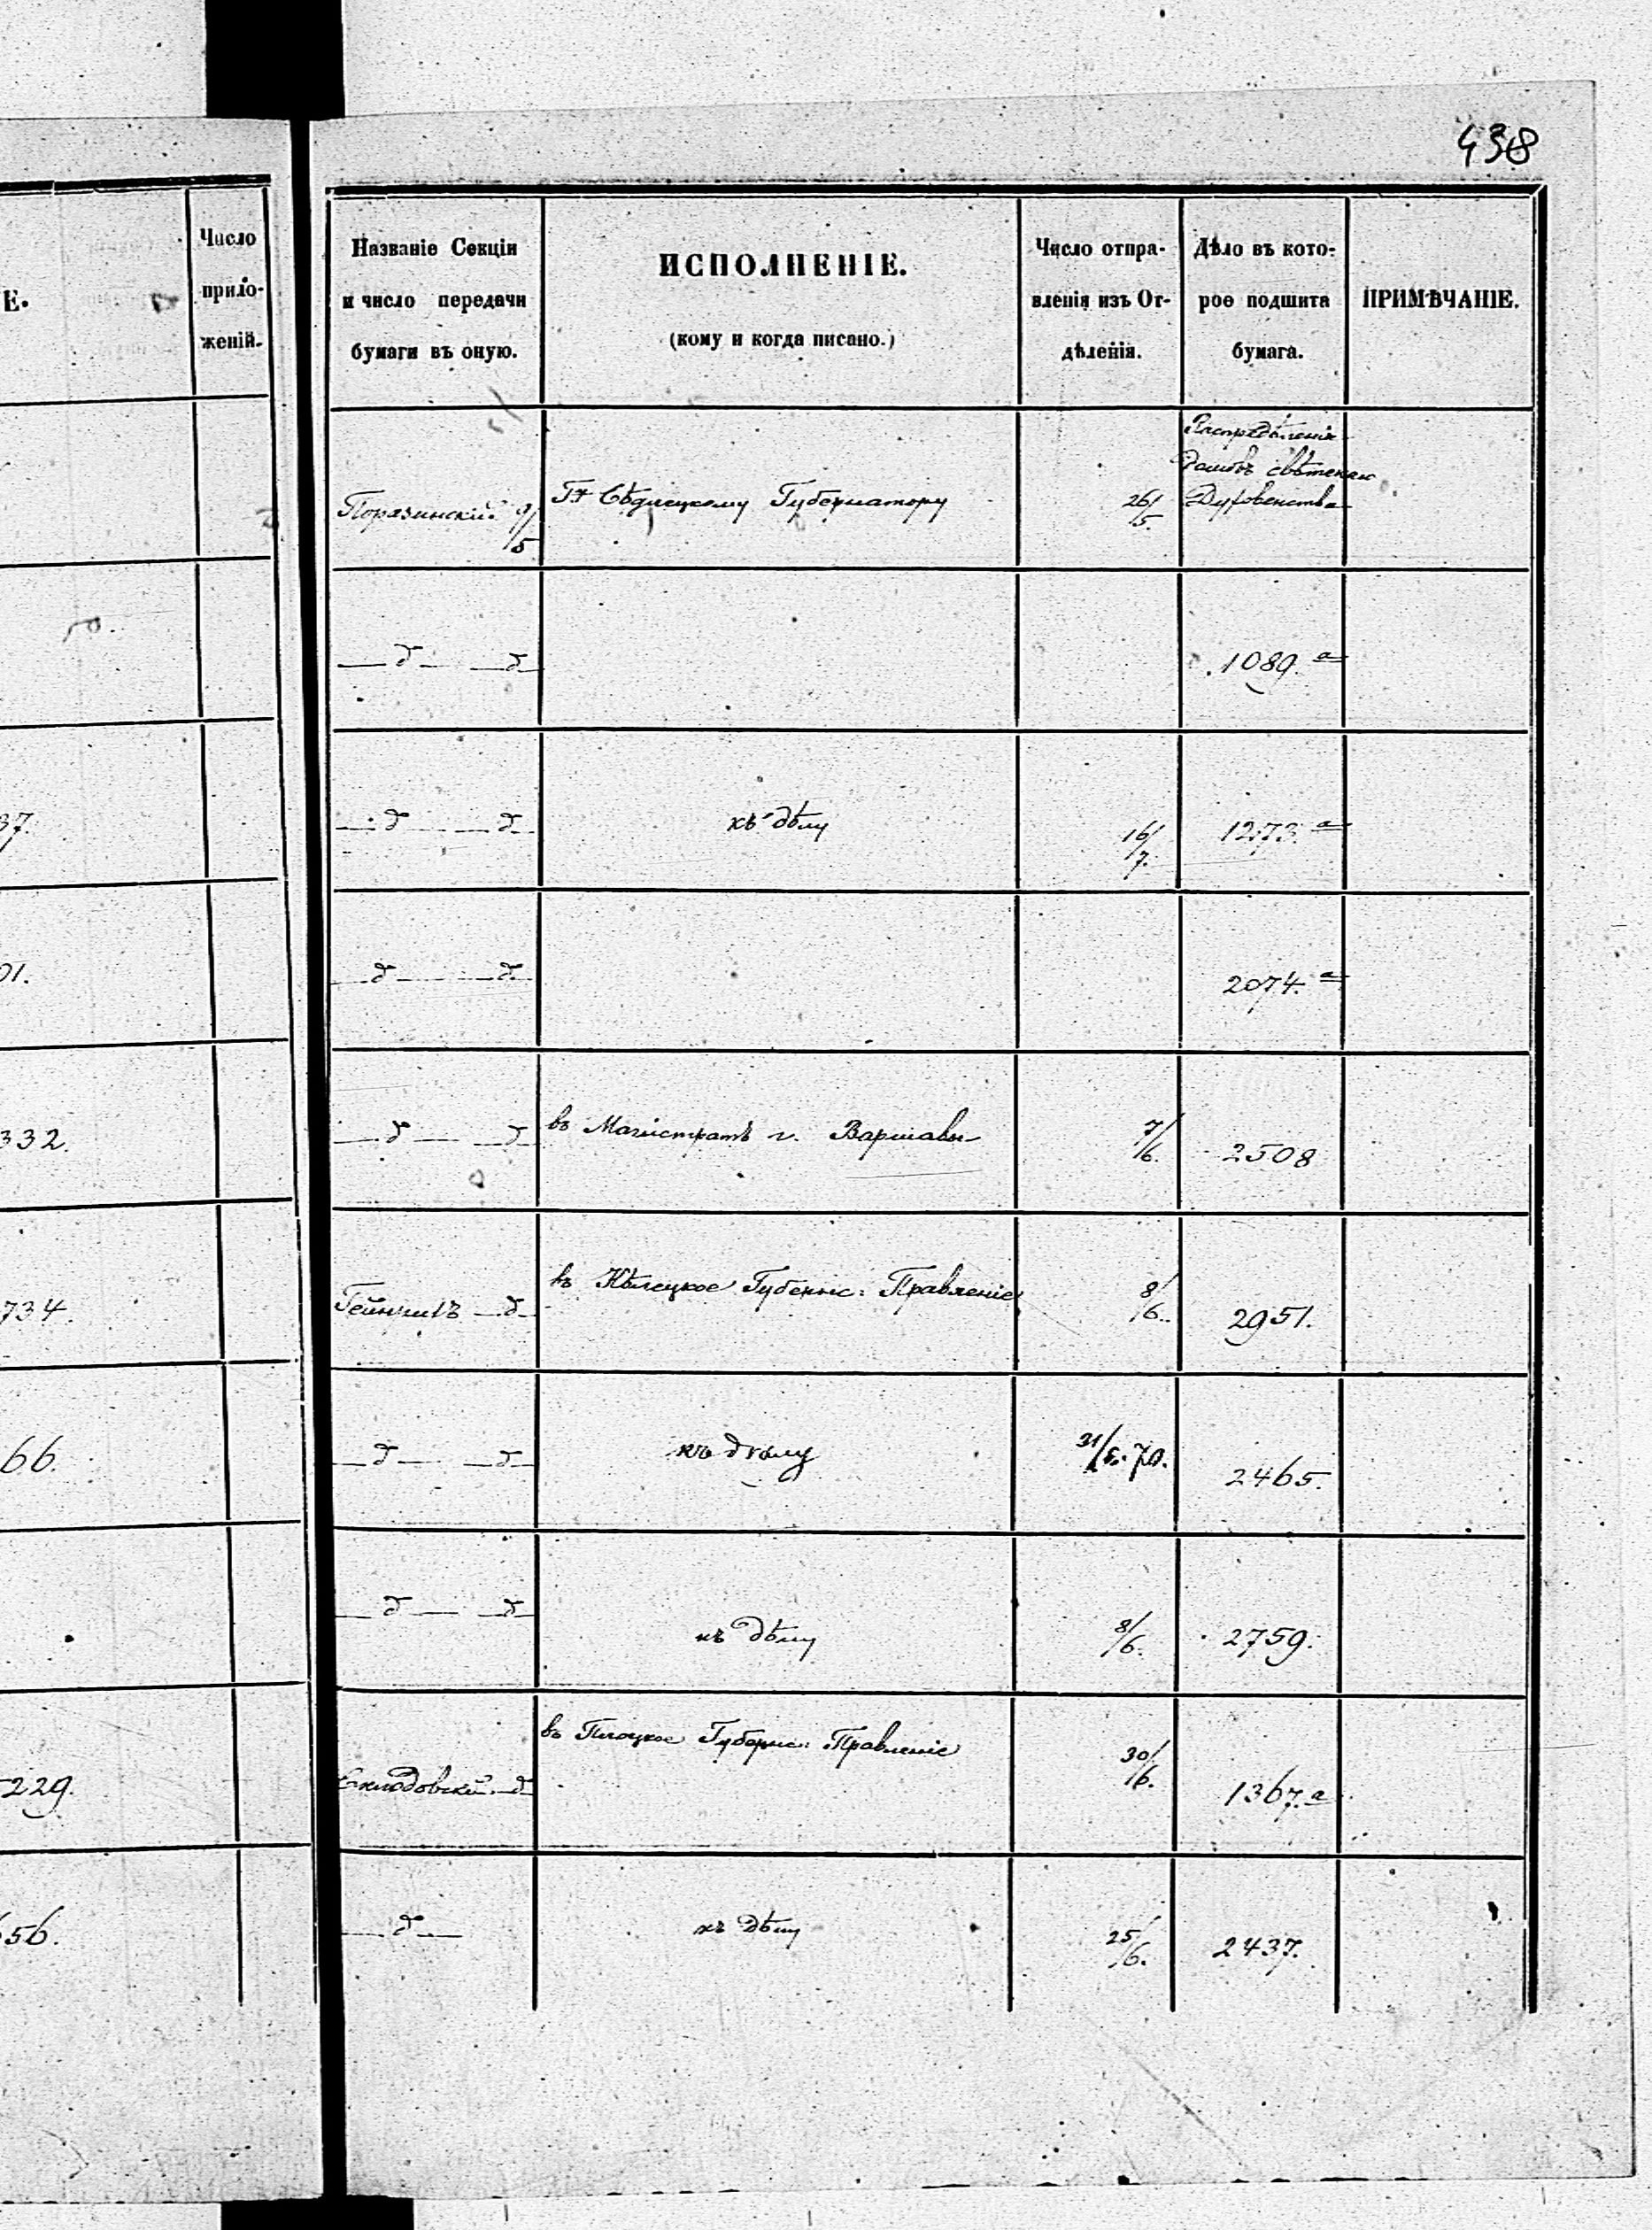 438
Е.
Число
прило-
женій.
Названіе Секціи
и число передачи
бумаги въ оную.
ИСПОЛНЕНІЕ.
(кому и когда писано.)
Число отпра-
вленія изъ От-
дѣленія.
Дѣло въ кото-
рое подшита
бумага.
ПРИМѢЧАНІЕ.
Поразинскій 9/5
Гу Сѣдлецкому Губернатору
26/5.
Распредѣленія
Духовенства
д д
1089.а
37.
д д
къ дѣлу
16/7.
1273.а
01.
д д
2074.а
332.
д д
въ Магистратъ г. Варшавы
7/6.
2508
734.
д
въ Кѣлецкое Губернс: Правленіе
8/6.
2951.
66.
д д
къ дѣлу
31/5. 70.
2465.
д д
къ дѣлу
8/6.
2759.
229.
Склодовскій д
въ Плоцкое Губернс: Правленіе
30/6.
1367.а
656.
д
къ дѣлу
25/6.
2437.